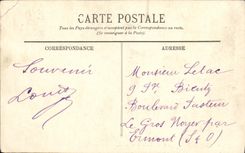 CARTE POSTALE
Tous les Pays étrangers n'acceptent pas la Correspondance au recto.
(Se renseigner à la Poste)
CORRESPONDANCE
ADRESSE
Souvenir
Louis
Monsieur Lelac
9
Boulevard Pasteur
Le Gros Noyer par
Ermont (S & O)